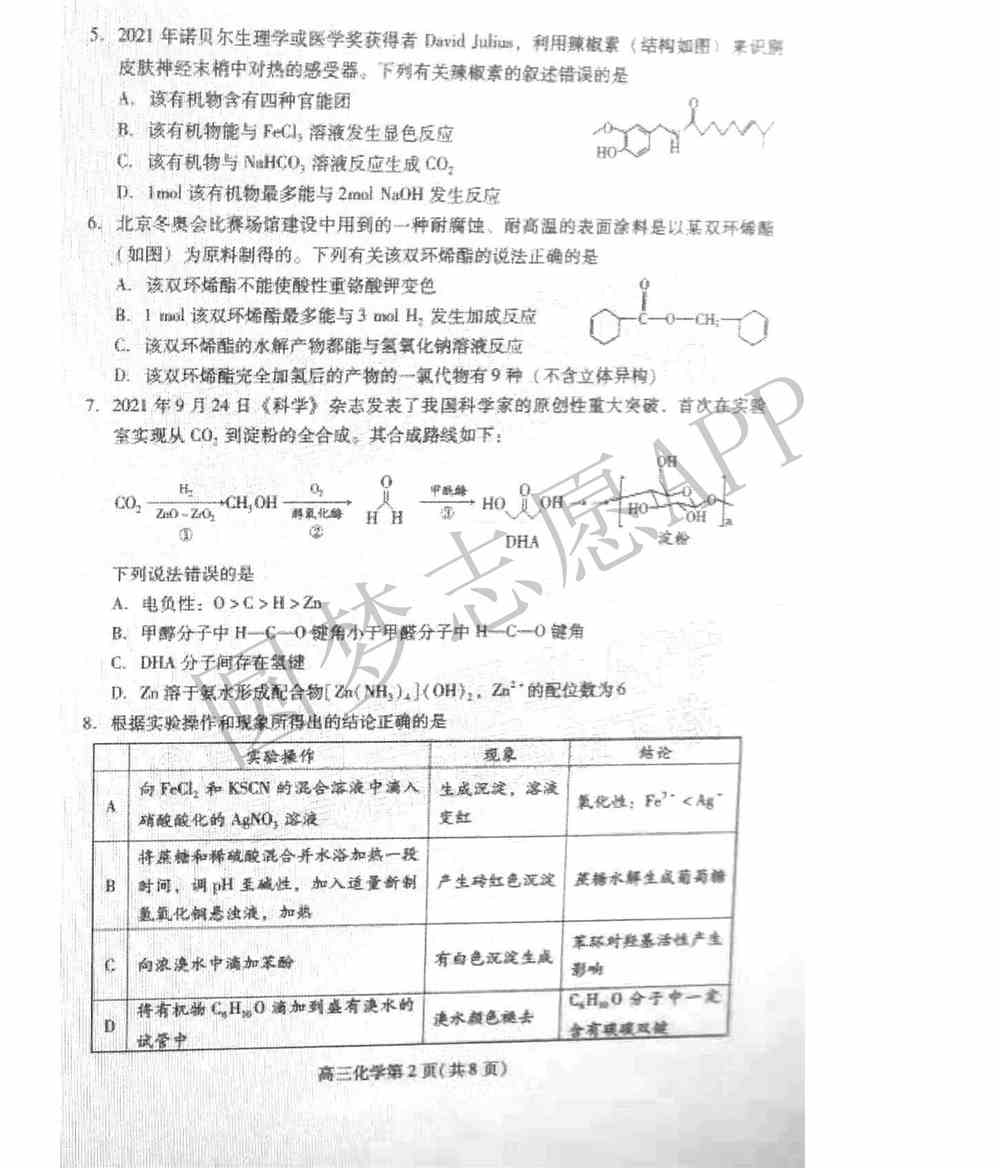 5. 2021 年诺贝尔生理学或医学奖获得者 David Julius，利用辣椒素（结构如图）来识别
皮肤神经末梢中对热的感受器。下列有关辣椒素的叙述错误的是
A. 该有机物含有四种官能团
B. 该有机物能与 FeCl₃ 溶液发生显色反应
C. 该有机物与 NaHCO₃ 溶液反应生成 CO₂
D. 1mol 该有机物最多能与 2mol NaOH 发生反应
O
O
HO
N
H
6. 北京冬奥会比赛场馆建设中用到的一种耐腐蚀、耐高温的表面涂料是以某双环烯酯
（如图）为原料制得的。下列有关该双环烯酯的说法正确的是
A. 该双环烯酯不能使酸性重铬酸钾变色
B. 1 mol 该双环烯酯最多能与 3 mol H₂ 发生加成反应
C. 该双环烯酯的水解产物都能与氢氧化钠溶液反应
D. 该双环烯酯完全加氢后的产物的一氯代物有 9 种（不含立体异构）
O
C—O—CH₂
7. 2021 年 9 月 24 日《科学》杂志发表了我国科学家的原创性重大突破，首次在实验
室实现从 CO₂ 到淀粉的全合成。其合成路线如下：
CO₂ H₂ ZnO－ZrO₂ ① CH₃OH O₂ 醇氧化酶 ② O H H 甲酰酶 ③ HO O OH DHA
OH O HO OH O n 淀粉
下列说法错误的是
A. 电负性：O＞C＞H＞Zn
B. 甲醇分子中 H—C—O 键角小于甲醛分子中 H—C—O 键角
C. DHA 分子间存在氢键
D. Zn 溶于氨水形成配合物[Zn(NH₃)₄](OH)₂，Zn²⁺ 的配位数为 6
8. 根据实验操作和现象所得出的结论正确的是
实验操作 现象 结论
A 向 FeCl₂ 和 KSCN 的混合溶液中滴入
硝酸酸化的 AgNO₃ 溶液
生成沉淀，溶液
变红
氧化性：Fe³⁺＜Ag⁺
B 将蔗糖和稀硫酸混合并水浴加热一段
时间，调 pH 至碱性，加入适量新制
氢氧化铜悬浊液，加热
产生砖红色沉淀
蔗糖水解生成葡萄糖
C 向浓溴水中滴加苯酚
有白色沉淀生成
苯环对羟基活性产生
影响
D 将有机物 C₆H₁₀O 滴加到盛有溴水的
试管中
溴水颜色褪去
C₆H₁₀O 分子中一定
含有碳碳双键
高三化学第 2 页（共 8 页）
圆梦志愿APP